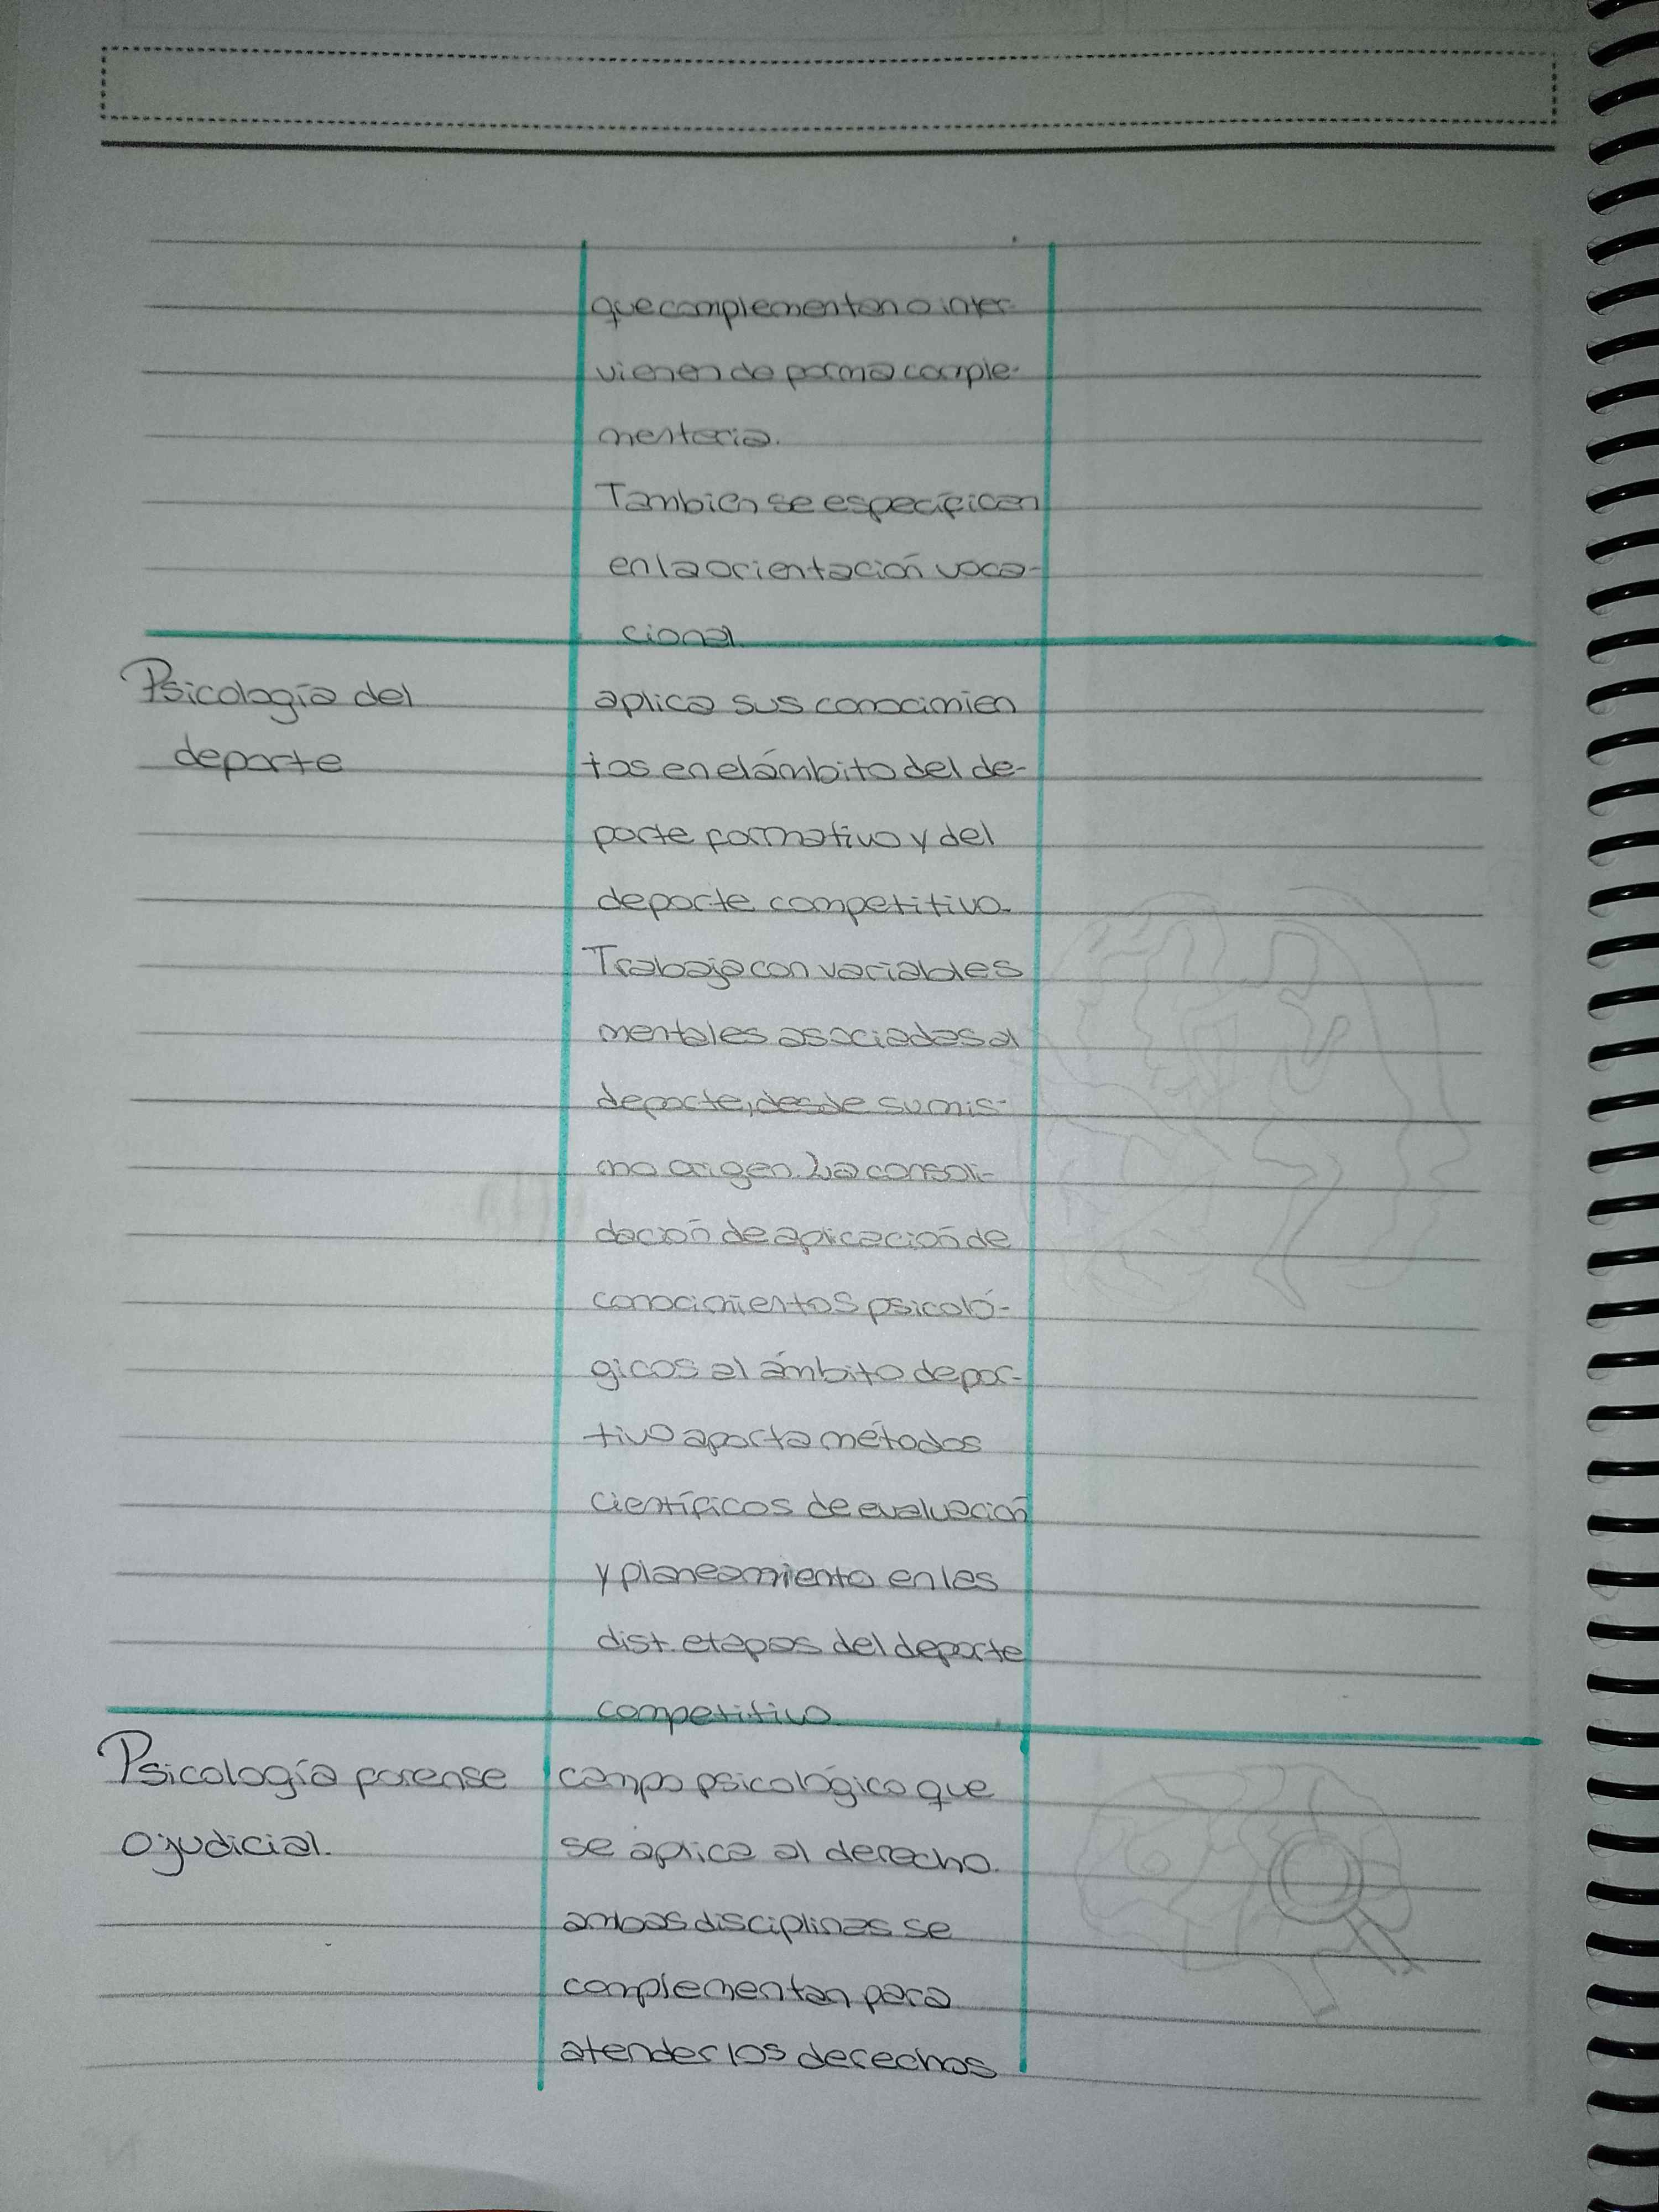 que complementan o inter-
vienen de forma comple-
mentaria.
Tambien se especifican
en la orientación voca-
cional.
Psicología del
deporte
aplica sus conocimien
tos en el ámbito del de-
porte formativo y del
deporte competitivo.
Trabaja con variables
mentales asociadas al
deporte, desde su mis-
mo origen. La consoli-
dación de aplicación de
conocimientos psicoló-
gicos al ámbito depor-
tivo aporta métodos
científicos de evaluación
y planeamiento en las
dist. etapas del deporte
competitivo.
Psicología forense
o judicial.
campo psicológico que
se aplica al derecho.
ambas disciplinas se
complementan para
atender los derechos